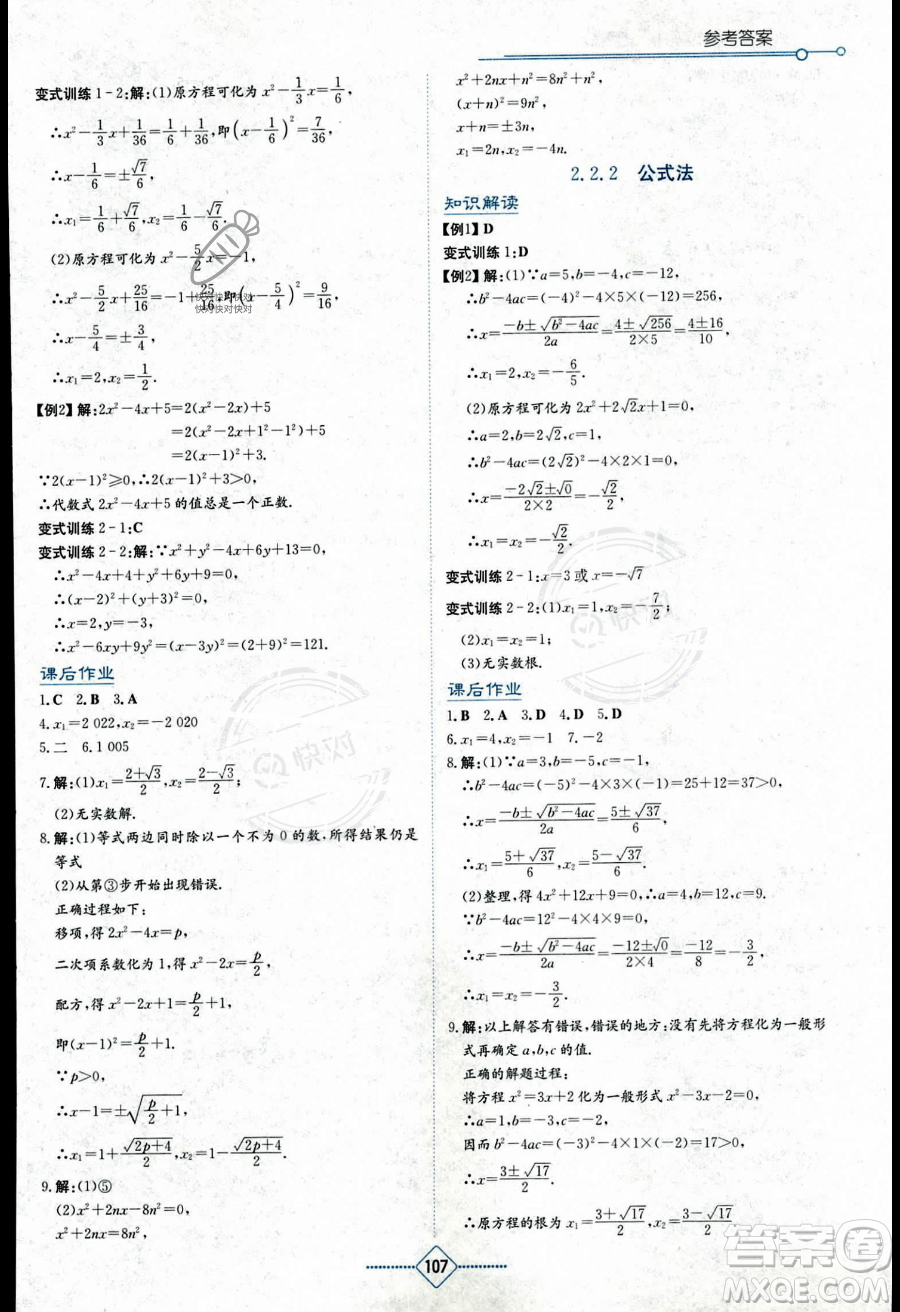 参考答案
变式训练1-2:解:(1)原方程可化为x²-1/3x=1/6,
∴x²-1/3x+1/36=1/6+1/36,即(x-1/6)²=7/36,
∴x-1/6=±√7/6,
∴x₁=1/6+√7/6,x₂=1/6-√7/6.
(2)原方程可化为x²-5/2x=-1,
∴x²-5/2x+25/16=-1+25/16,即(x-5/4)²=9/16,
∴x-5/4=±3/4,
∴x₁=2,x₂=1/2.
【例2】解:2x²-4x+5=2(x²-2x)+5
=2(x²-2x+1²-1²)+5
=2(x-1)²+3.
∵2(x-1)²≥0,∴2(x-1)²+3>0,
∴代数式2x²-4x+5的值总是一个正数.
变式训练2-1:C
变式训练2-2:解:∵x²+y²-4x+6y+13=0,
∴x²-4x+4+y²+6y+9=0,
∴(x-2)²+(y+3)²=0,
∴x=2,y=-3,
∴x²-6xy+9y²=(x-3y)²=(2+9)²=121.
课后作业
1.C 2.B 3.A
4.x₁=2 022,x₂=-2 020
5.二 6.1 005
7.解:(1)x₁=(2+√3)/2,x₂=(2-√3)/2;
(2)无实数解.
8.解:(1)等式两边同时除以一个不为0的数,所得结果仍是
等式
(2)从第③步开始出现错误.
正确过程如下:
移项,得2x²-4x=p,
二次项系数化为1,得x²-2x=p/2,
配方,得x²-2x+1=p/2+1,
即(x-1)²=p/2+1.
∵p>0,
∴x-1=±√(p/2+1),
∴x₁=1+√(2p+4)/2,x₂=1-√(2p+4)/2.
9.解:(1)⑤
(2)x²+2nx-8n²=0,
x²+2nx=8n²,
x²+2nx+n²=8n²+n²,
(x+n)²=9n²,
x+n=±3n,
x₁=2n,x₂=-4n.
2.2.2 公式法
知识解读
【例1】D
变式训练1:D
【例2】解:(1)∵a=5,b=-4,c=-12,
∴b²-4ac=(-4)²-4×5×(-12)=256,
∴x=(-b±√(b²-4ac))/2a=(4±√256)/(2×5)=(4±16)/10,
∴x₁=2,x₂=-6/5.
(2)原方程可化为x²+2√2x+2=0,
∴a=1,b=2√2,c=2,
∴b²-4ac=(2√2)²-4×1×2=0,
∴x=(-2√2±√0)/(2×2)=-√2/2,
∴x₁=x₂=-√2/2.
变式训练2-1:x=3或x=-√7
变式训练2-2:(1)x₁=1,x₂=-7/2;
(2)x₁=x₂=1;
(3)无实数根.
课后作业
1.B 2.A 3.D 4.D 5.D
6.x₁=4,x₂=-1 7.-2
8.解:(1)∵a=3,b=-5,c=-1,
∴b²-4ac=(-5)²-4×3×(-1)=25+12=37>0,
∴x=(-b±√(b²-4ac))/2a=(5±√37)/6,
∴x₁=(5+√37)/6,x₂=(5-√37)/6.
(2)整理,得4x²+12x+9=0,∴a=4,b=12,c=9.
∵b²-4ac=12²-4×4×9=0,
∴x=(-b±√(b²-4ac))/2a=(-12±√0)/(2×4)=-12/8=-3/2,
∴x₁=x₂=-3/2.
9.解:以上解答有错误,错误的地方:没有先将方程化为一般形
式再确定a,b,c的值.
正确的解题过程:
将方程x²=3x+2化为一般形式为x²-3x-2=0,
∴a=1,b=-3,c=-2,
因而b²-4ac=(-3)²-4×1×(-2)=17>0,
∴x=(3±√17)/2.
∴原方程的根为x₁=(3+√17)/2,x₂=(3-√17)/2.
107
快对快对快对
快对快对快对
快对
快对
答案圈
MXQE.COM